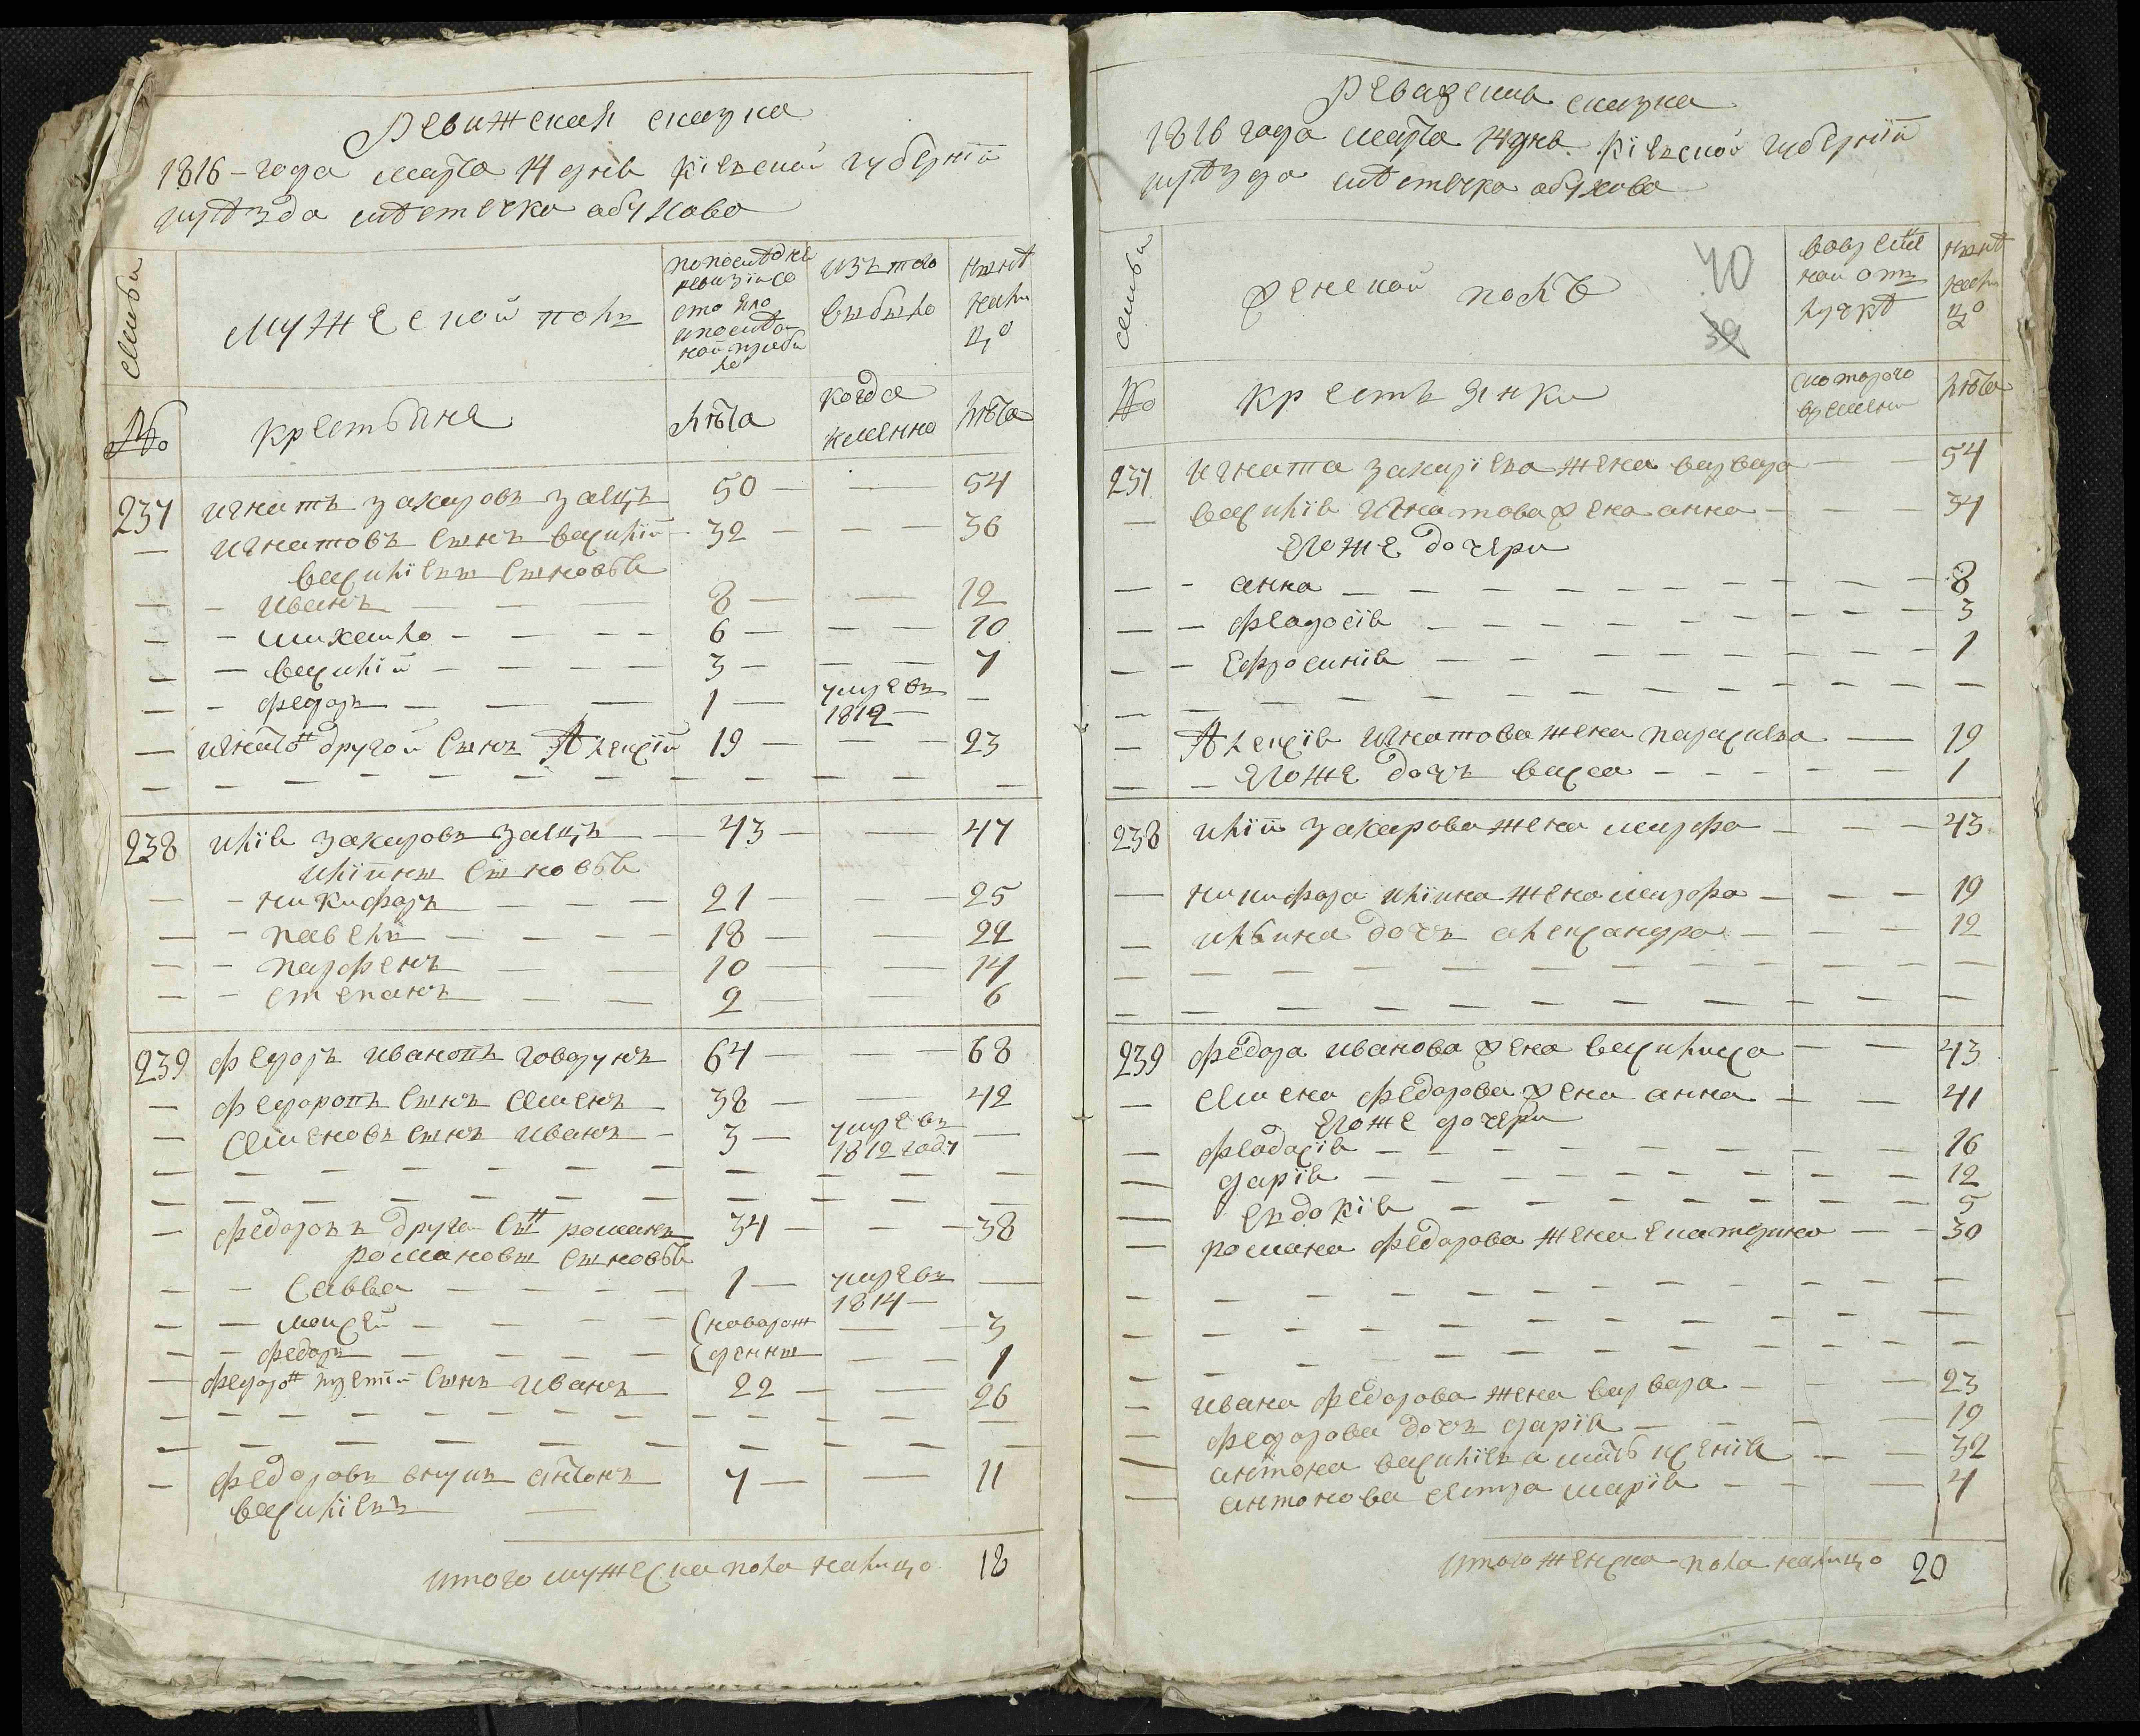 Ревижская сказка
1816 – года марта 14 дня Кіевской губерніи
уѣзда мѣстечка абухова
семьи
мужеской полъ
по последней
ревизіи со
стояло
и после
ной прибы
ло
изъ того
выбыло
нынѣ
нали
цо
№
крестьяне
лѣта
когда
имянно
лѣта
237 игнатъ захаровъ заецъ 50 — — 54
— игнатовъ сынъ василій 32 — — 36
василіевы сыновья
— иванъ 8 — — 12
— михайло 6 — — 10
— василій 3 — — 7
— федоръ 1 — умревъ
1812 —
— игнато другой сынъ Алексій 19 — — 23
238 илія захаровъ заецъ 43 — — 47
иліины сыновья
— никифоръ 21 — — 25
— павелъ 18 — — 22
— парфенъ 10 — — 14
— степанъ 2 — — 6
239 федоръ ивановъ говорунъ 64 — — 68
— федоровъ сынъ семенъ 38 — — 42
— семеновъ сынъ иванъ 3 — умревъ —
1812 году
— федоровъ други сын романъ 34 — — 38
романовы сыновья
— савва 1 — умревъ —
1814 —
— моисей новорож — 3
— федоръ денны — 1
— федоро третій сынъ иванъ 22 — — 26
— федоровъ внукъ антонъ 7 — — 11
василіевъ
итого мужеска пола налицо 18
Ревизская сказка
1816 года марта 14 дня Кіевской губерніи
уѣзда мѣстечка абухова
семьи
женской полъ
40
39
во времен
ной отъ
лучкѣ
нынѣ
нали
цо
№
крестьянки
с котораго
времени
лѣта
237 игната захаріева жена варвара — — 54
— василія игнатова жена анна — — 34
егоже дочери
— анна — 8
— феодосія — 3
— ефросинія — 1
— Алексія игнатова жена параскева — 19
— егоже дочъ васса — 1
238 иліи захарова жена марфа — — 43
— никифора иліина жена марфа — — 19
— ильина дочъ александра — — 12
239 федора иванова жена василиса — — 43
— семена федорова жена анна — — 41
егоже дочери
— феодосія — 16
— дарія — 12
— евдокія — 5
— романа федорова жена екатерина — — 30
— ивана федорова жена варвара — — 23
— федорова дочъ дарія — 19
— антона василіева мать ксенія — — 32
— антонова сестра марія — — 4
итого женска пола налицо 20